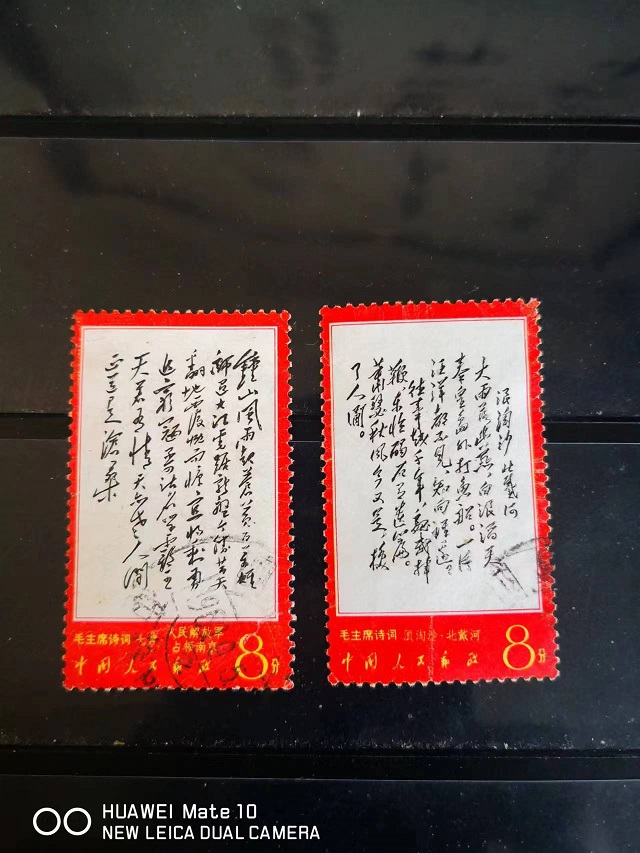 鐘山風雨起蒼黃百萬雄
師過大江虎踞龍盤今勝昔天
翻地覆慨而慷宜將剩勇
追窮寇不可沽名學霸王
天若有情天亦老人間
正道是滄桑
毛主席诗词 七律 人民解放军
占领南京
中国人民邮政 8分
浪淘沙 北戴河
大雨落幽燕,白浪滔天
秦皇島外打魚船。一片
汪洋都不見,知向誰邊
往事越千年,魏武揮
鞭,東臨碣石有遺篇。
蕭瑟秋風今又是,換
了人間。
毛主席诗词 浪淘沙·北戴河
中国人民邮政 8分
HUAWEI Mate 10
NEW LEICA DUAL CAMERA